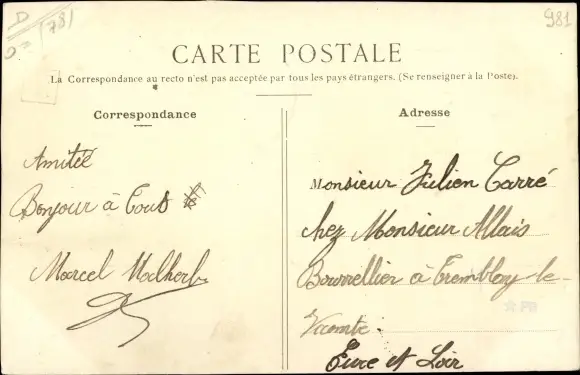 D
(78)
981
CARTE POSTALE
La Correspondance au recto n'est pas acceptée par tous les pays étrangers. (Se renseigner à la Poste).
Correspondance
Amitié
Bonjour à Tous
Marcel Malherb
Adresse
Monsieur Julien Carré
chez Monsieur Allais
Bourrellier à Tremblay-le-
Vicomte
Eure et Loir